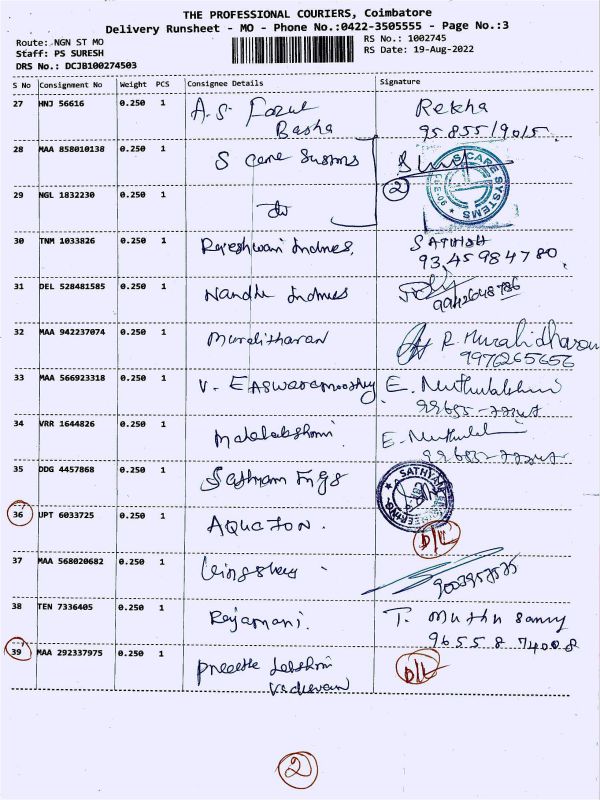 THE PROFESSIONAL COURIERS, Coimbatore
Delivery Runsheet - MO - Phone No.:0422-3505555 - Page No.:3
Route: NGN ST MO
Staff: PS SURESH
DRS No.: DCJB100274503
RS No.: 1002745
RS Date: 19-Aug-2022
S No Consignment No Weight PCS Consignee Details Signature
27 HNJ 56616 0.250 1 A.S. Fazul Rekha
Basha 95855 19015.
28 MAA 858010138 0.250 1 S Care Sustms
S CARE SYSTEMS
2
29 NGL 1832230 0.250 1
30 TNM 1033826 0.250 1 Rajeshwari Indmes. SATHISH
93459 84780.
31 DEL 528481585 0.250 1 Nandhu Indmes
9942648786
32 MAA 942237074 0.250 1 Muralitharan R. Muralidharan
9976265656
33 MAA 566923318 0.250 1 V. Easwaramoorthy E. Muthulakshmi
34 VRR 1644826 0.250 1 Mahalakshmi. E. Muthulak
35 DDG 4457868 0.250 1 Sathyam Engs
36 UPT 6033725 0.250 1 AQUATON. D/L
37 MAA 568020682 0.250 1
38 TEN 7336405 0.250 1 Rajamani. T. Muthu Samy
96558 74008
39 MAA 292337975 0.250 1 Preethe Lakshmi D/L
2